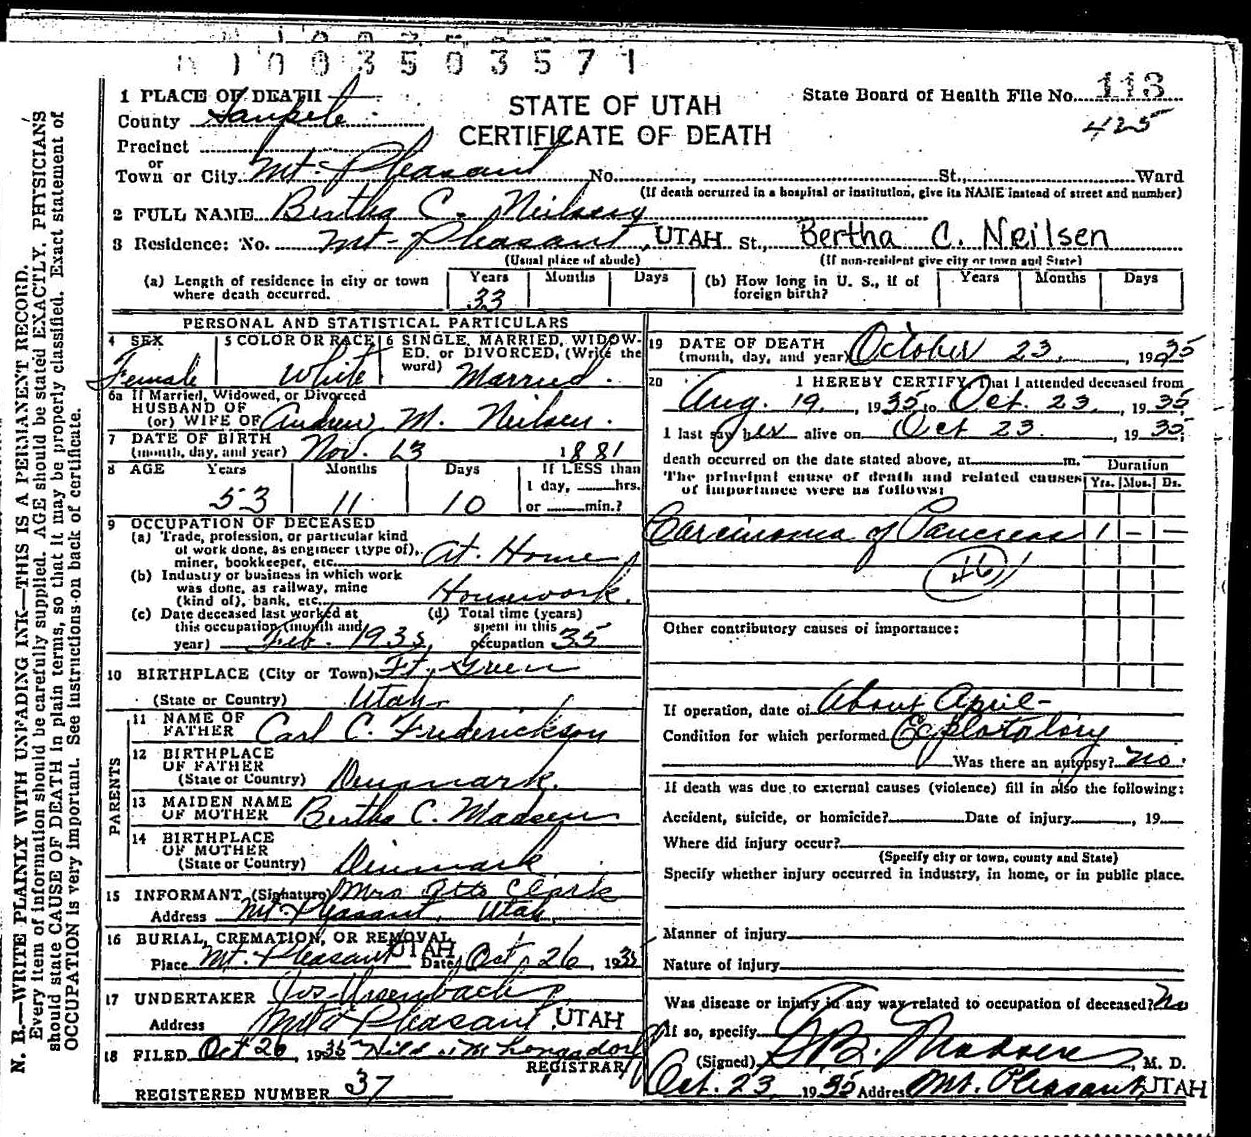 1003503571
1 PLACE OF DEATH
County Sanpete
STATE OF UTAH
CERTIFICATE OF DEATH
State Board of Health File No. 113
425
Precinct
or
Town or City Mt. Pleasant No. , St., Ward
(If death occurred in a hospital or institution, give its NAME instead of street and number)
2 FULL NAME Bertha C. Neilsen
3 Residence: No. Mt-Pleasant, UTAH St., Bertha C. Neilsen
(Usual place of abode) (If non-resident give city or town and State)
(a) Length of residence in city or town where death occurred. Years 33 Months Days
(b) How long in U. S., if of foreign birth? Years Months Days
PERSONAL AND STATISTICAL PARTICULARS
4 SEX Female
5 COLOR OR RACE White
6 SINGLE, MARRIED, WIDOWED, or DIVORCED, (Write the word) Married.
6a If Married, Widowed, or Divorced
HUSBAND OF
(or) WIFE OF Andrew M. Neilsen.
7 DATE OF BIRTH
(month, day, and year) Nov. 13 1881
8 AGE Years Months Days If LESS than
53 11 10 1 day, hrs.
or min.?
9 OCCUPATION OF DECEASED
(a) Trade, profession, or particular kind
of work done, as engineer (type of),
miner, bookkeeper, etc. At. Home
(b) Industry or business in which work
was done, as railway, mine
(kind of), bank, etc. Housework.
(c) Date deceased last worked at
this occupation (month and
year) Feb. 1935
(d) Total time (years)
spent in this
occupation 35
10 BIRTHPLACE (City or Town) Ft. Green
(State or Country) Utah
PARENTS
11 NAME OF
FATHER Carl C. Frederickson
12 BIRTHPLACE
OF FATHER
(State or Country) Denmark.
13 MAIDEN NAME
OF MOTHER Bertha C. Madsen
14 BIRTHPLACE
OF MOTHER
(State or Country) Dinmark
15 INFORMANT (Signature) Mrs Otto Clark
Address Mt. Pleasant, Utah.
16 BURIAL, CREMATION, OR REMOVAL
Place Mt. Pleasant UTAH Date Oct. 26, 1935
17 UNDERTAKER
Address Mt. Pleasant, UTAH
18 FILED Oct 26, 1935 Longsdorf
REGISTRAR
REGISTERED NUMBER 37
19 DATE OF DEATH
(month, day, and year) October 23, 1935
20 I HEREBY CERTIFY, That I attended deceased from
Aug. 19, 1935 to Oct. 23, 1935
I last saw her alive on Oct 23, 1935
death occurred on the date stated above, at m.
The principal cause of death and related causes
of importance were as follows:
Duration
Yrs. Mos. Ds.
Carcinoma of Pancreas 1 - -
46
Other contributory causes of importance:
If operation, date of About April-
Condition for which performed Explotatory
Was there an autopsy? No.
If death was due to external causes (violence) fill in also the following:
Accident, suicide, or homicide? Date of injury , 19
Where did injury occur?
(Specify city or town, county and State)
Specify whether injury occurred in industry, in home, or in public place.
Manner of injury
Nature of injury
Was disease or injury in any way related to occupation of deceased? No
If so, specify
(Signed) Madsen, M. D.
Oct. 23, 1935 Address Mt. Pleasant, UTAH
N. B.—WRITE PLAINLY WITH UNFADING INK—THIS IS A PERMANENT RECORD.
Every item of information should be carefully supplied. AGE should be stated EXACTLY. PHYSICIANS
should state CAUSE OF DEATH in plain terms, so that it may be properly classified. Exact statement of
OCCUPATION is very important. See instructions on back of certificate.